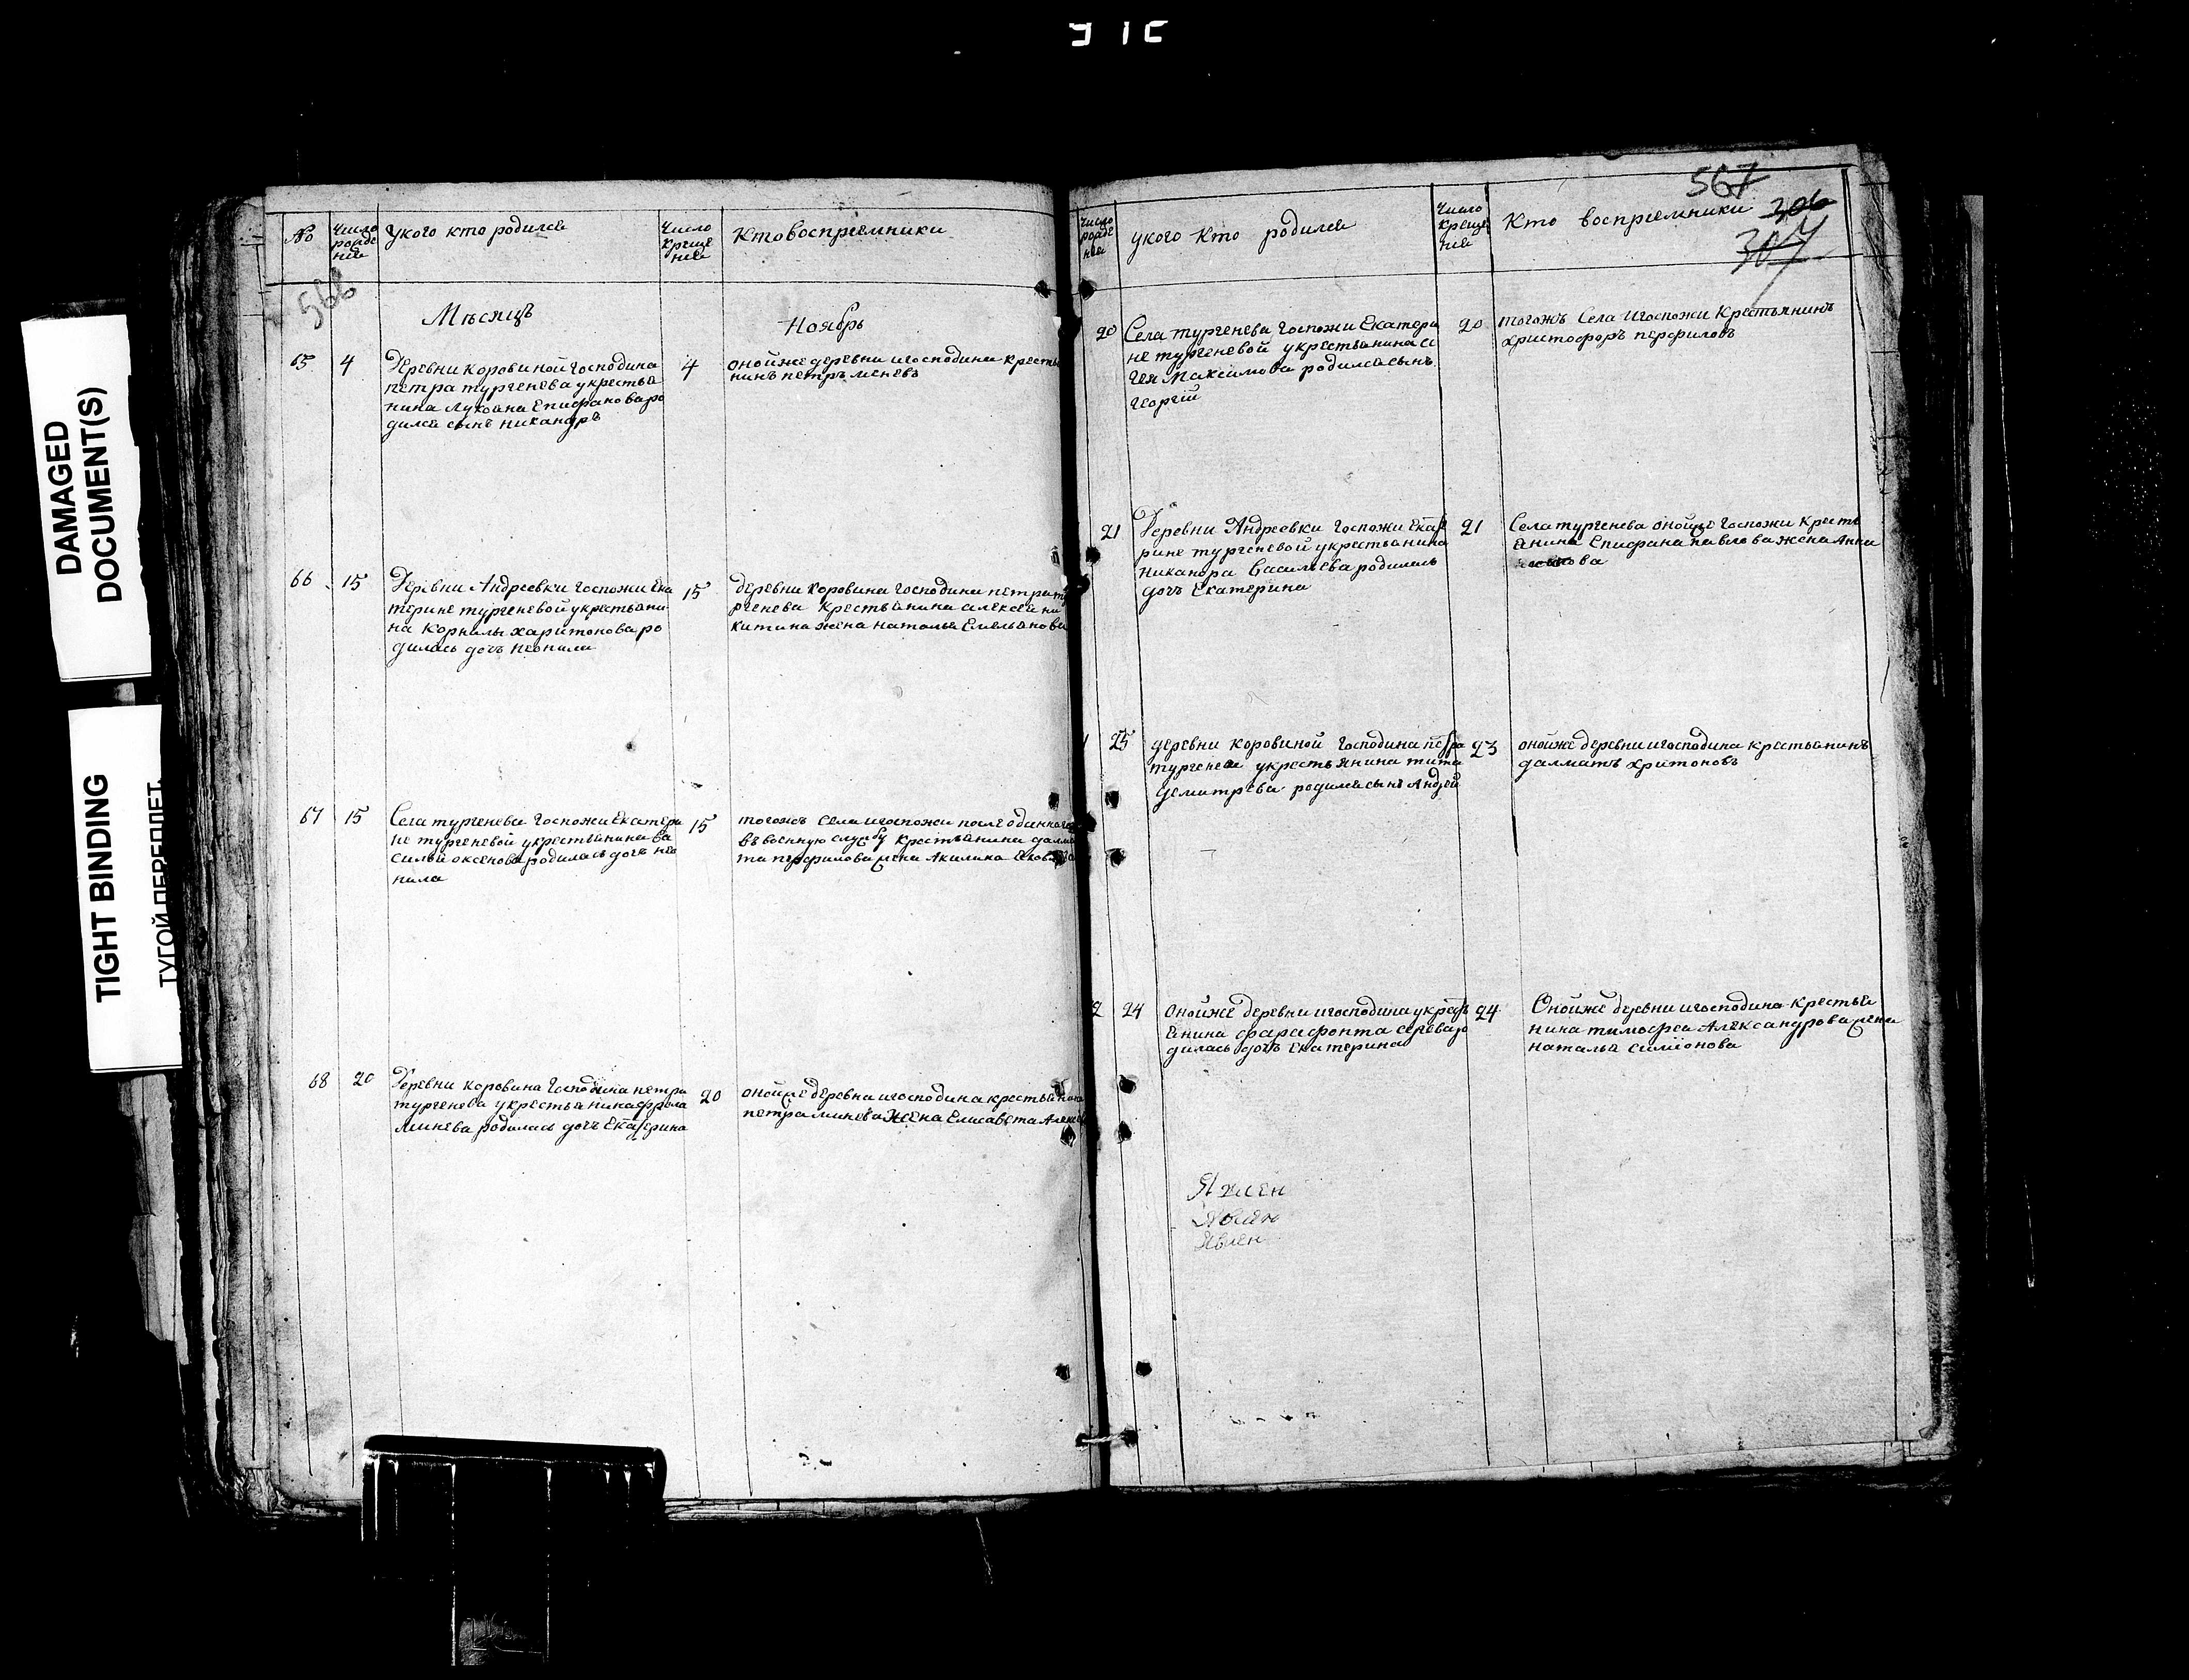 DAMAGED
DOCUMENT(S)
TIGHT BINDING
ТУГОЙ ПЕРЕПЛЕТ.
566
№
Число рожденїе
у кого кто родилсе
Число крещенїе
Кто воспрїемники
Мѣсяцъ
Ноябрь
65
4
Деревни Коровиной господина
петра тургенева укрестья
нина Лукоана Епифанова ро
дилсе сынъ никандръ
4
онойже деревни игосподина кресть
нинъ петръ меневъ
66
15
Деревни Андреевки госпожи Ека
терине тургеневой укрестьяни
на Корнилы харитонова ро
дилась дочь неонила
15
деревни Коровина господина петра ту
ргенева крестьянина алексея ни
китина жена наталья Емельянова
67
15
Села тургенева госпожи Екатери
не тургеневой укрестьянина ва
силья оксенова родилась дочь нео
нила
15
тогожъ села игоспожи после оданного
въ военную службу крестьянина далма
та перфилова жена Акилина
68
20
Деревни Коровина господина петра
тургенева укрестьянина фрола
минева родилась дочь Екатерина
20
онойже деревни игосподина крестьянина
петра минева жена Елисавета
567
306
307
Число рожденїе
у кого кто родилсе
Число крещенїе
Кто воспрїемники
20
Села тургенева госпожи Екатери
не тургеневой укрестьянина се
гея Максимова родилсе сынъ
георгїй
20
тогожъ Села игоспожи Крестьянинъ
христофоръ перфиловъ
21
Деревни Андреевки госпожи Екате
рине тургеневой укрестьянина
Никанора Васильева родилась
дочь Екатерина
21
Села тургенева онойже госпожи кресть
янина Епифана павлова жена Анна
25
деревни Коровиной господина петра
тургенева укрестьянина тита
Демитрева родилсе сынъ Андрей
23
онойже деревни игосподина крестьянинъ
далматъ хритоновъ
2
24
Онойже деревни игосподина укресть
янина фарафонта сергева ро
дилась дочь Екатерина
24
Онойже деревни игосподина крестья
нина тимофея Александрова жена
наталья симїонова
Явлен